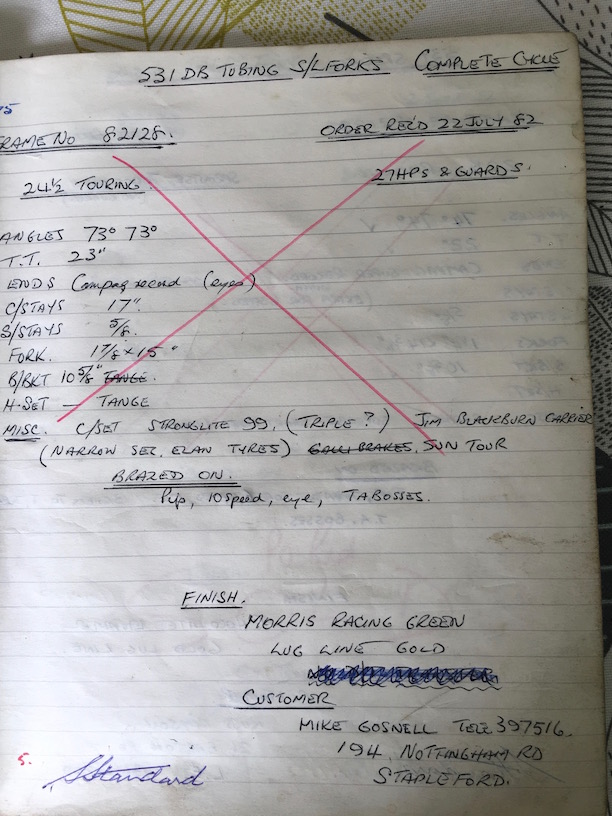 531 DB TUBING S/L FORKS COMPLETE CYCLE
75
FRAME NO 82128. ORDER REC'D 22 JULY 82
24½ TOURING. 27HPS & GUARDS.
ANGLES 73° 73°
T.T. 23"
ENDS Compag record (eyes)
C/STAYS 17".
S/STAYS 5/8.
FORK. 1 7/8 x 15"
B/BKT 10 5/8" TANGE.
H.SET — TANGE
MISC. C/SET STRONGLITE 99, (TRIPLE ?) JIM BLACKBURN CARRIER
(NARROW SEC, ELAN TYRES) GALLI BRAKES, SUN TOUR
BRAZED ON.
Pip, 10 speed, eye, TA BOSSES.
FINISH.
MORRIS RACING GREEN
LUG LINE GOLD
CUSTOMER
MIKE GOSNELL TELE 397516.
194, NOTTINGHAM RD
STAPLEFORD.
5.
Standard